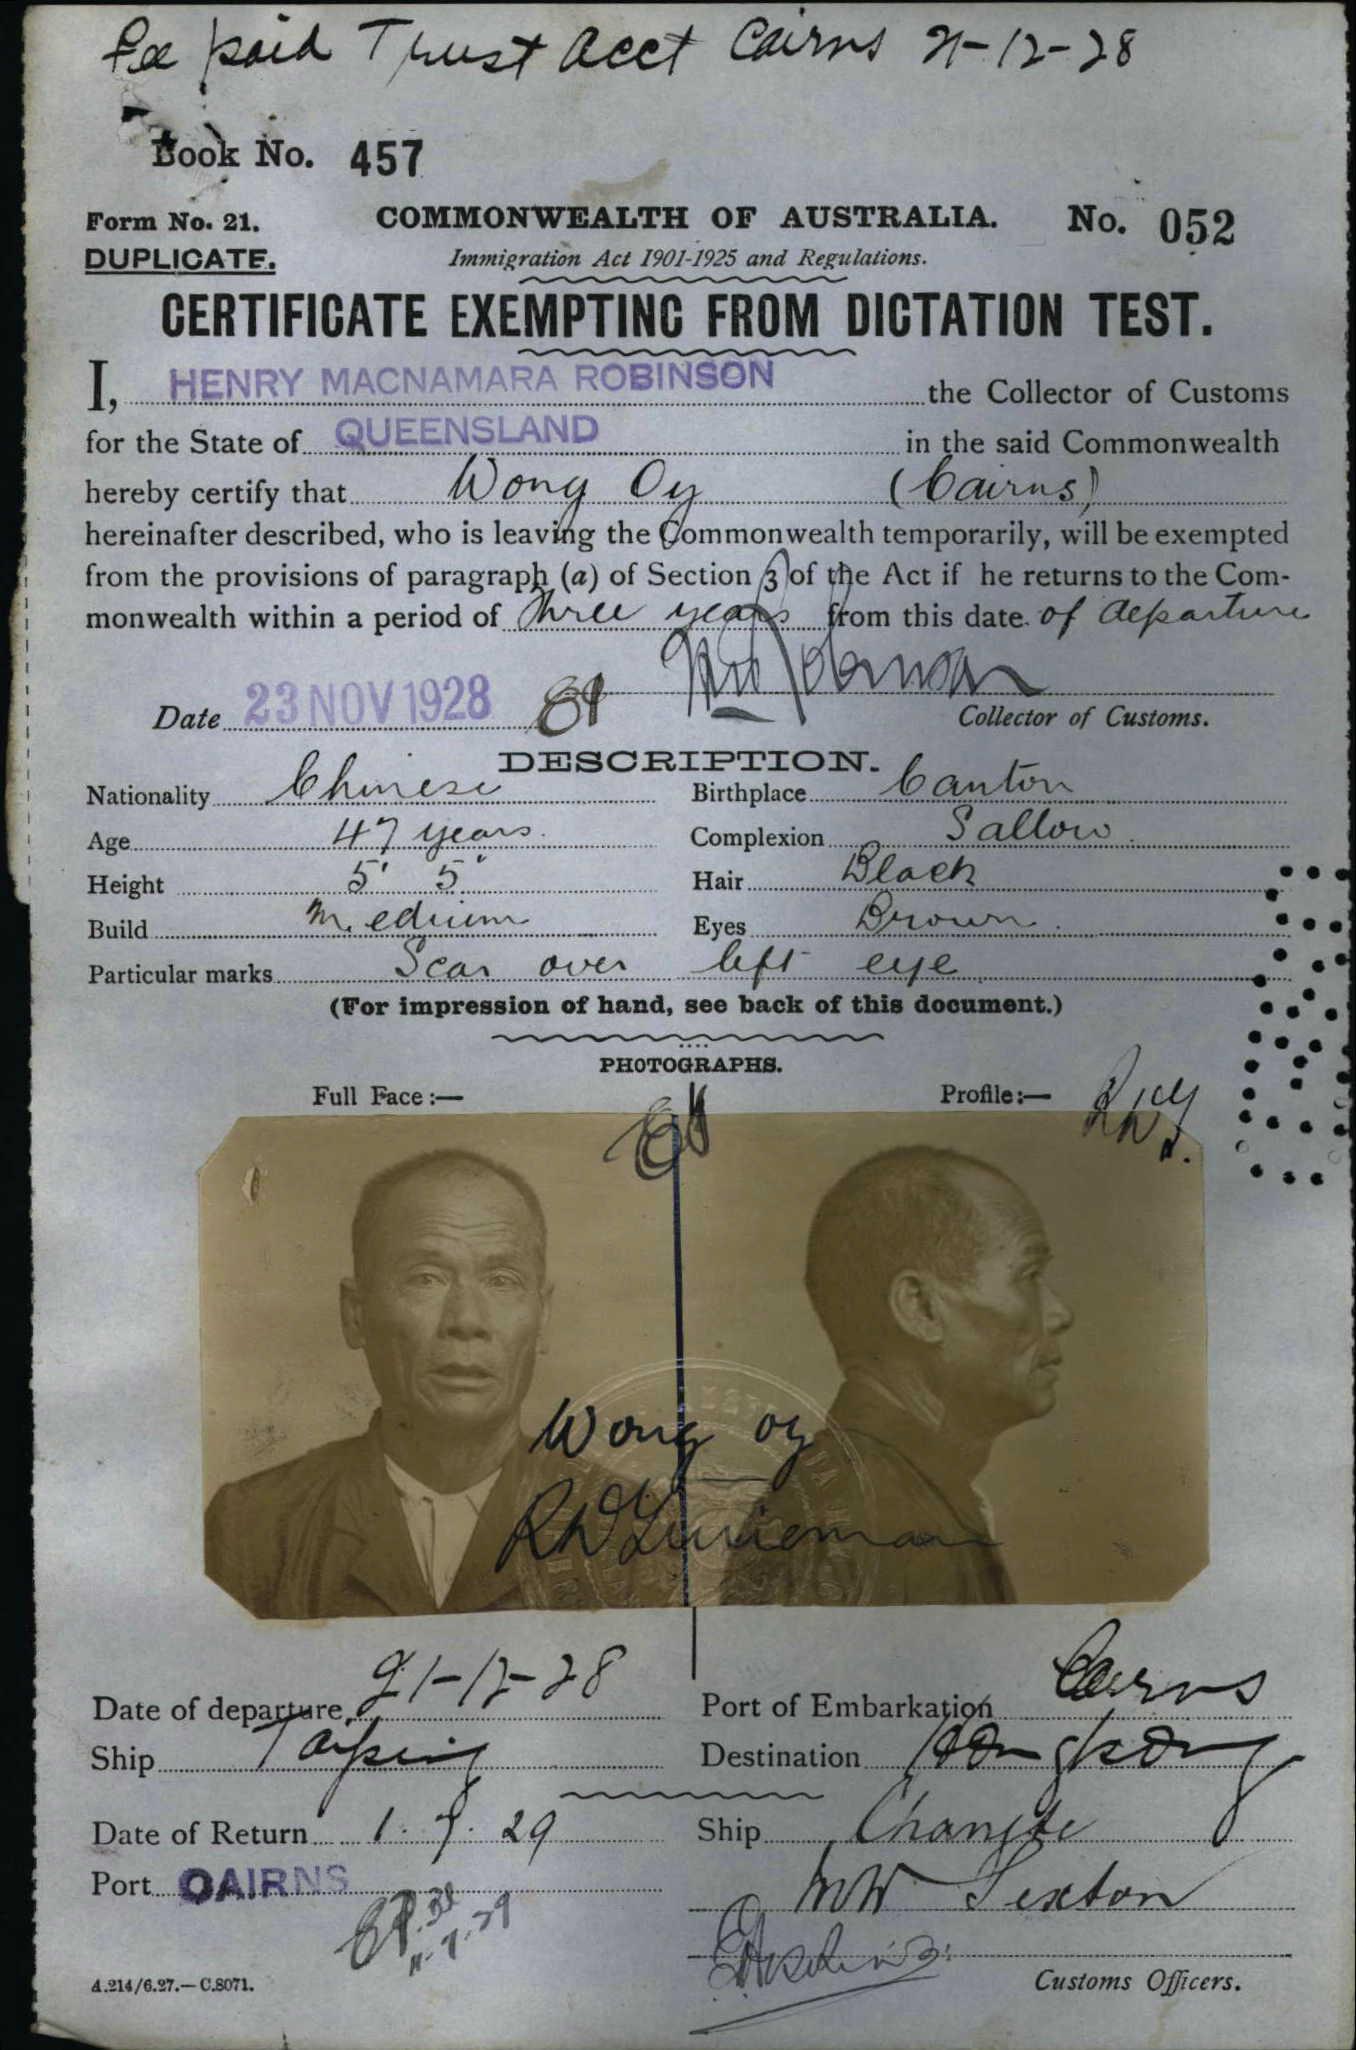 Fee paid Trust Acct Cairns 21-12-28
Book No. 457
Form No. 21. COMMONWEALTH OF AUSTRALIA. No. 052
DUPLICATE. Immigration Act 1901-1925 and Regulations.
CERTIFICATE EXEMPTING FROM DICTATION TEST.
I, HENRY MACNAMARA ROBINSON the Collector of Customs
for the State of QUEENSLAND in the said Commonwealth
hereby certify that Wong Oy (Cairns)
hereinafter described, who is leaving the Commonwealth temporarily, will be exempted
from the provisions of paragraph (a) of Section 3 of the Act if he returns to the Com-
monwealth within a period of Three years from this date of departure
HM Robinson
Date 23 NOV 1928 Collector of Customs.
DESCRIPTION.
Nationality Chinese Birthplace Canton
Age 47 years. Complexion Sallow
Height 5' 5" Hair Black
Build Medium Eyes Brown.
Particular marks Scar over left eye
(For impression of hand, see back of this document.)
PHOTOGRAPHS.
Full Face:— Profile:—
Wong Oy
Date of departure 21-12-28 Port of Embarkation Cairns
Ship Taiping Destination Hongkong
Date of Return 1. 7. 29 Ship Changte
Port CAIRNS
W Sexton
11.7.29
A.214/6.27.—C.8071. Customs Officers.